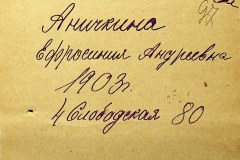 97
Аничкина
Ефросиния Андреевна
1903г.
4 Слободская 80